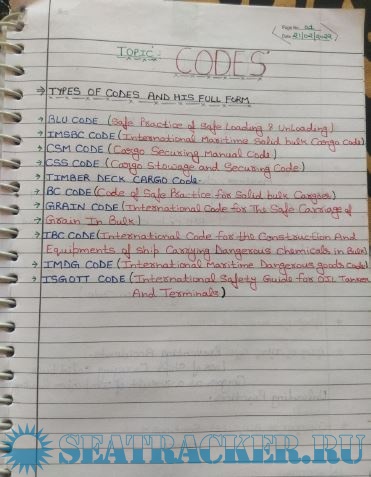 Page No. 01
Date 21/02/2022
TOPIC: CODES
→ TYPES OF CODES AND HIS FULL FORM
→ BLU CODE (Safe Practice of Safe Loading & Unloading)
→ IMSBC CODE (International Maritime Solid bulk Cargo Code)
→ CSM CODE (Cargo Securing Manual Code)
→ CSS CODE (Cargo Stowage and Securing Code)
→ TIMBER DECK CARGO Code.
→ BC CODE (Code of Safe Practice for Solid bulk Cargoes)
→ GRAIN CODE (International Code for The Safe Carriage of
→ Grain In Bulk)
→ IBC CODE (International Code for the Construction And
Equipments of ship Carrying Dangerous chemicals in Bulk)
→ IMDG CODE (International Maritime Dangerous goods Code)
→ ISGOTT CODE (International Safety Guide for OIL Tanker
And Terminals)
SEATRACKER.RU